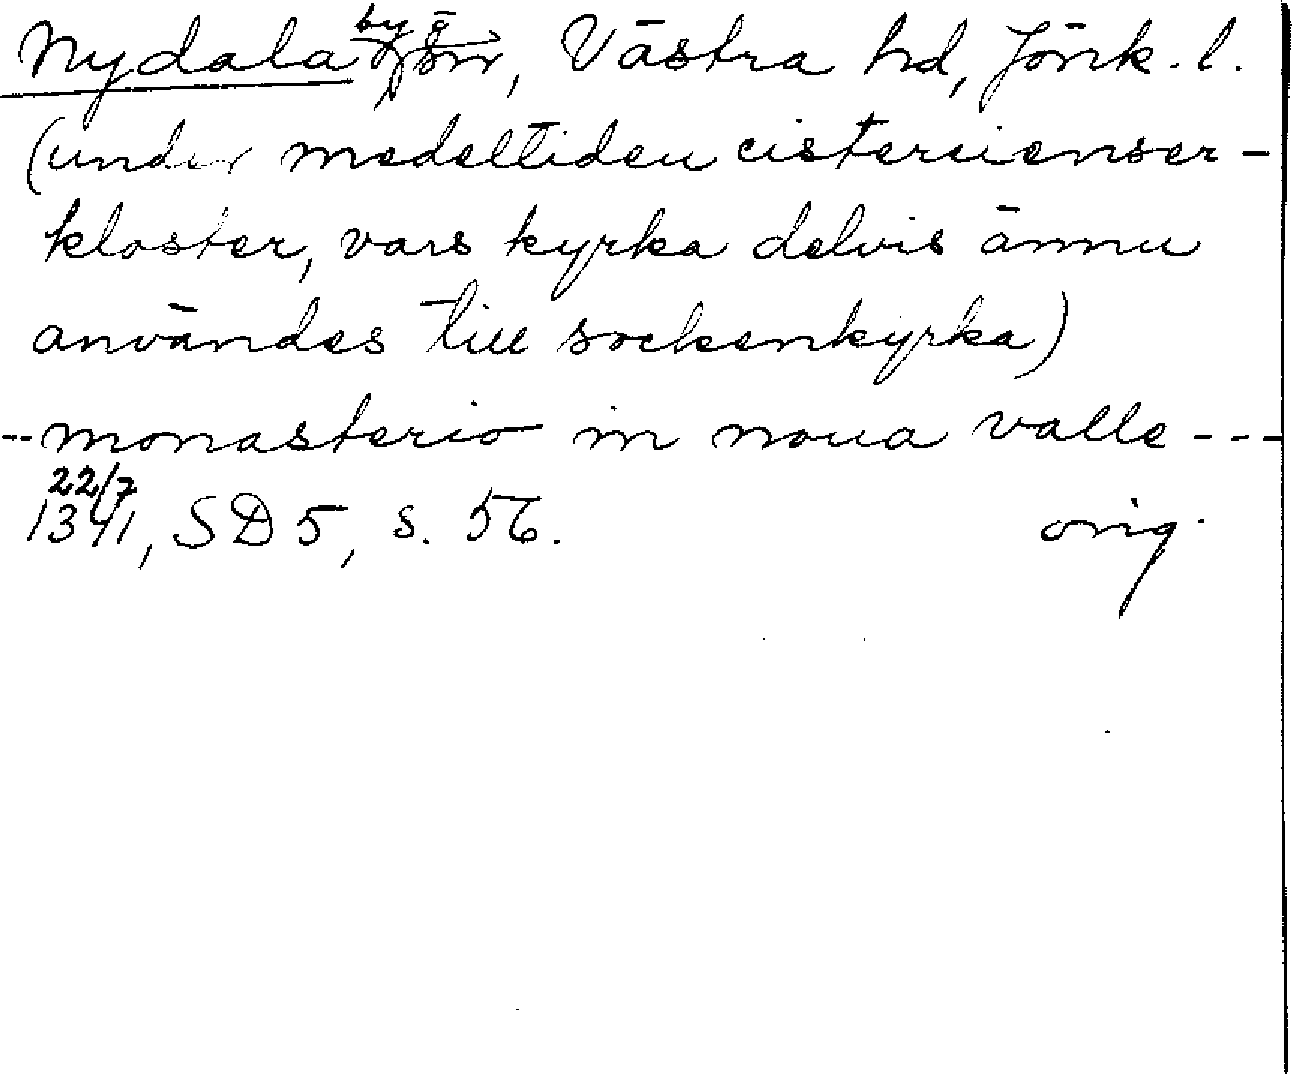 Nydala by, Västra hd, Jönk. l.
(under medeltiden cistercienser-
kloster, vars kyrka delvis ännu
användes till sockenkyrka)
-- monasterio in noua valle ---
22/7
1341, SD 5, s. 56. orig.